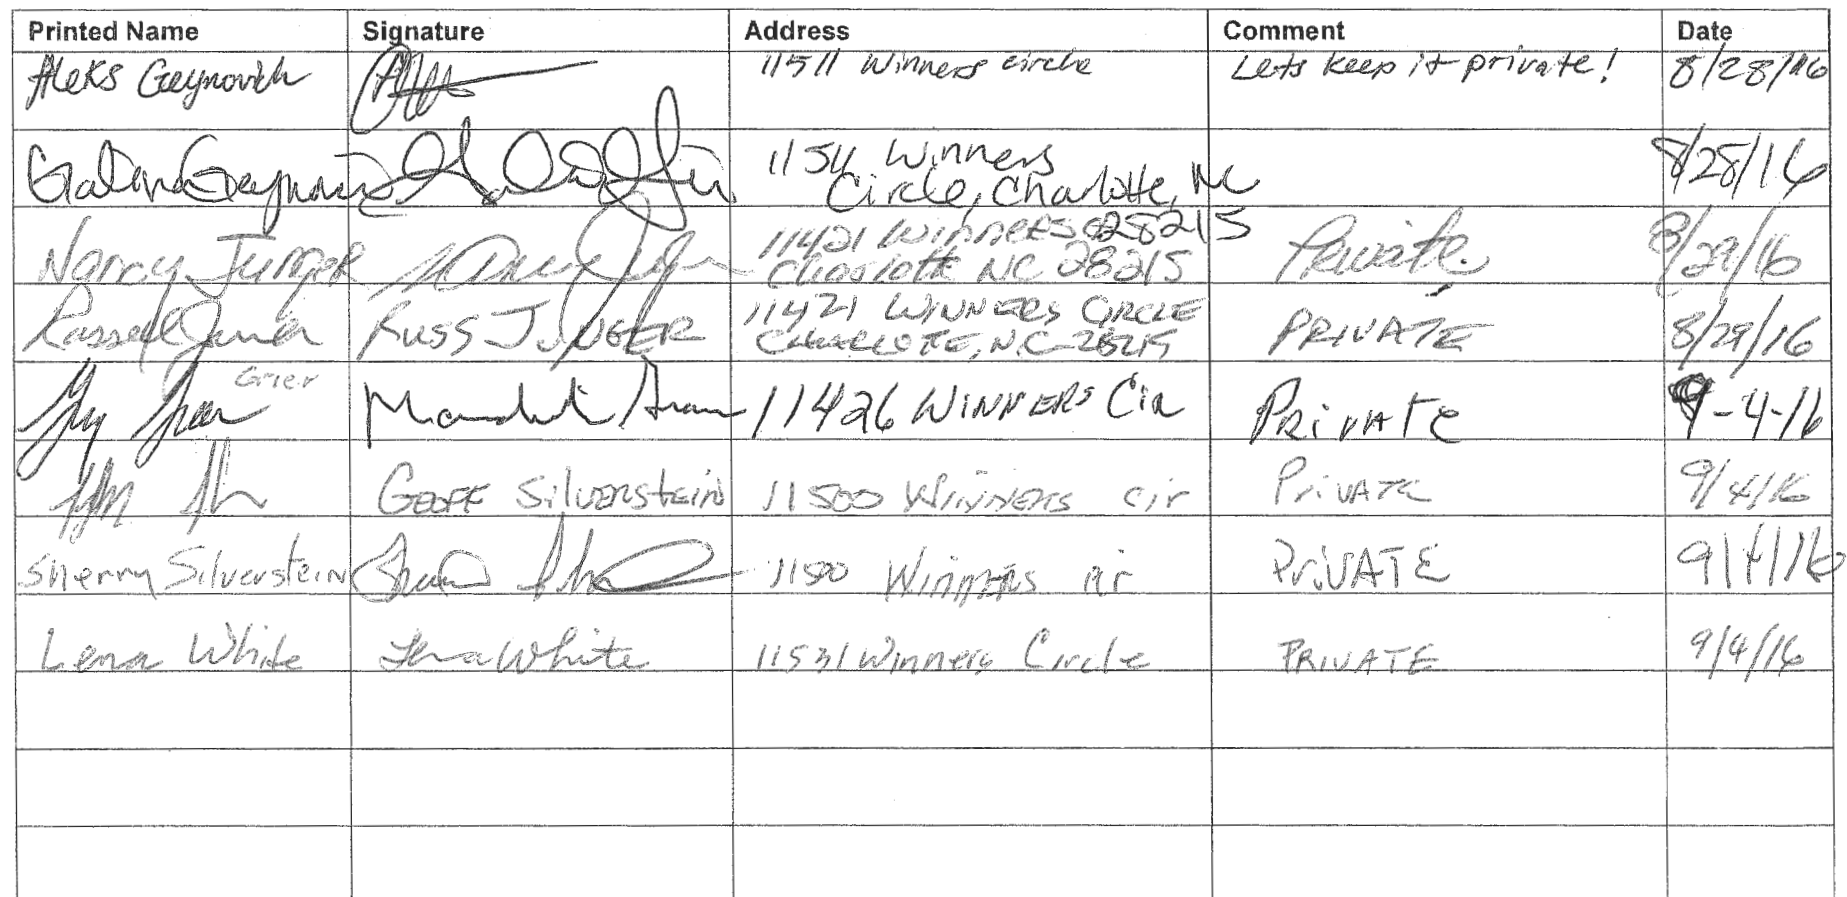 Printed Name Signature Address Comment Date
Aleks Geynovich 11511 Winners circle Lets keep it private! 8/28/16
Galina Geynovich 11511 Winners 8/28/16
Circle, Charlotte, NC
28215
Nancy Junger 11421 Winners Private 8/29/16
Charlotte NC 28215
Russell Junger RUSS JUNGER 11421 WINNERS CIRCLE PRIVATE 8/29/16
CHARLOTTE, N.C. 28215
Grier
11426 WINNERS Cir PRiVATE 9-4-16
GEOFF SilvERStEiN 11500 WiNNERS cir PriVATE 9/4/16
Sherry Silverstein 11500 WiNNERS cir PRiVATE 9/4/16
Lena White Lena White 11531 Winners Circle PRIVATE 9/4/16